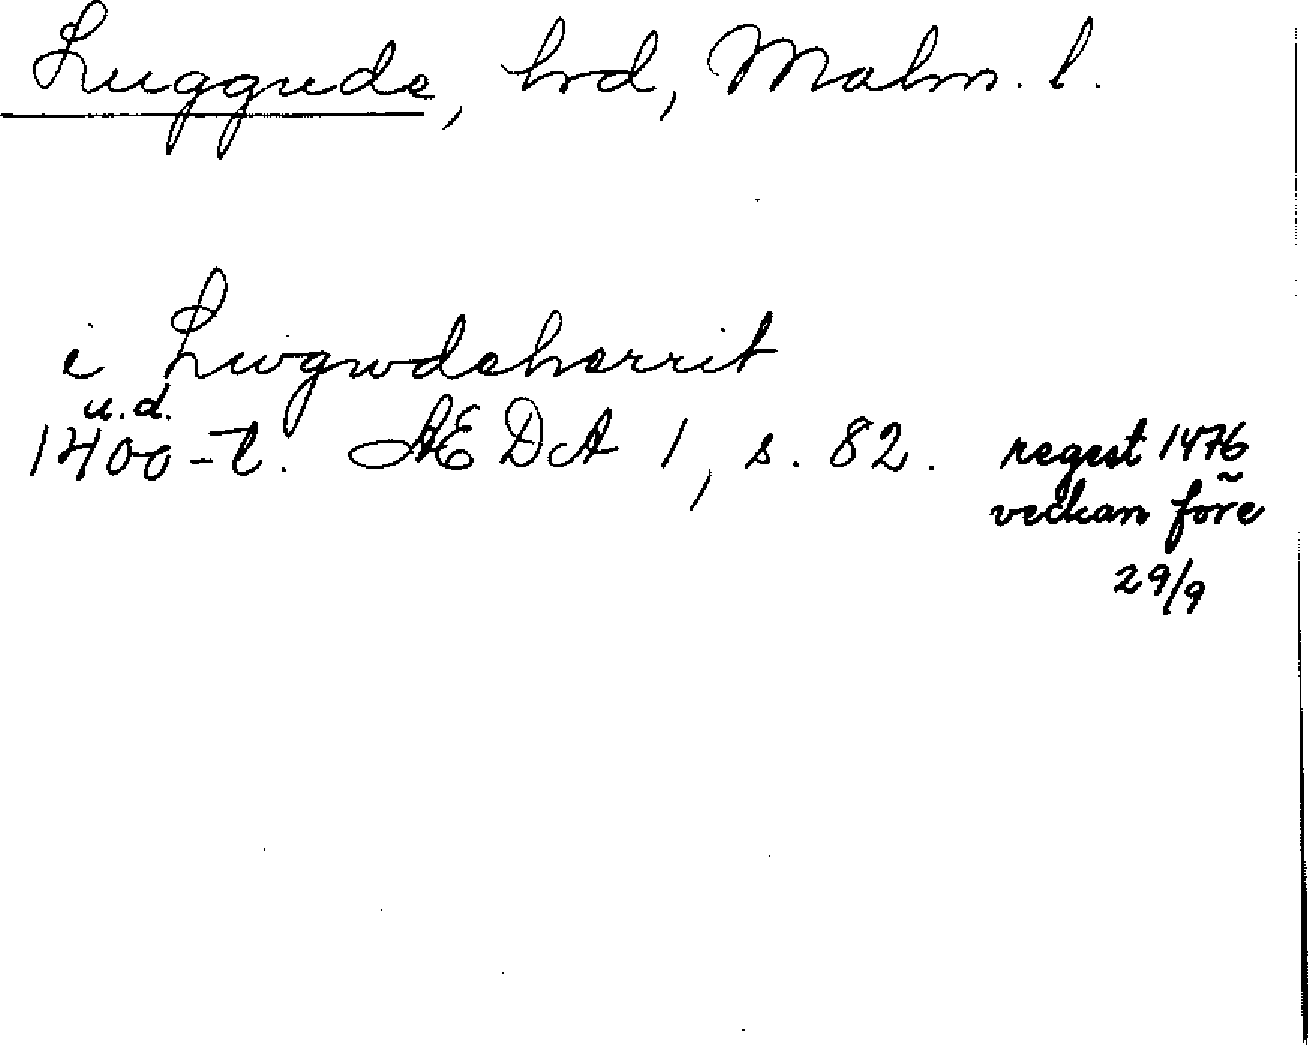 Luggude, hrd, Malm. l.
i Lwgwdeherrit
u.d.
1400-t. ÆDA 1, s. 82. regest 1476
veckan före
29/9